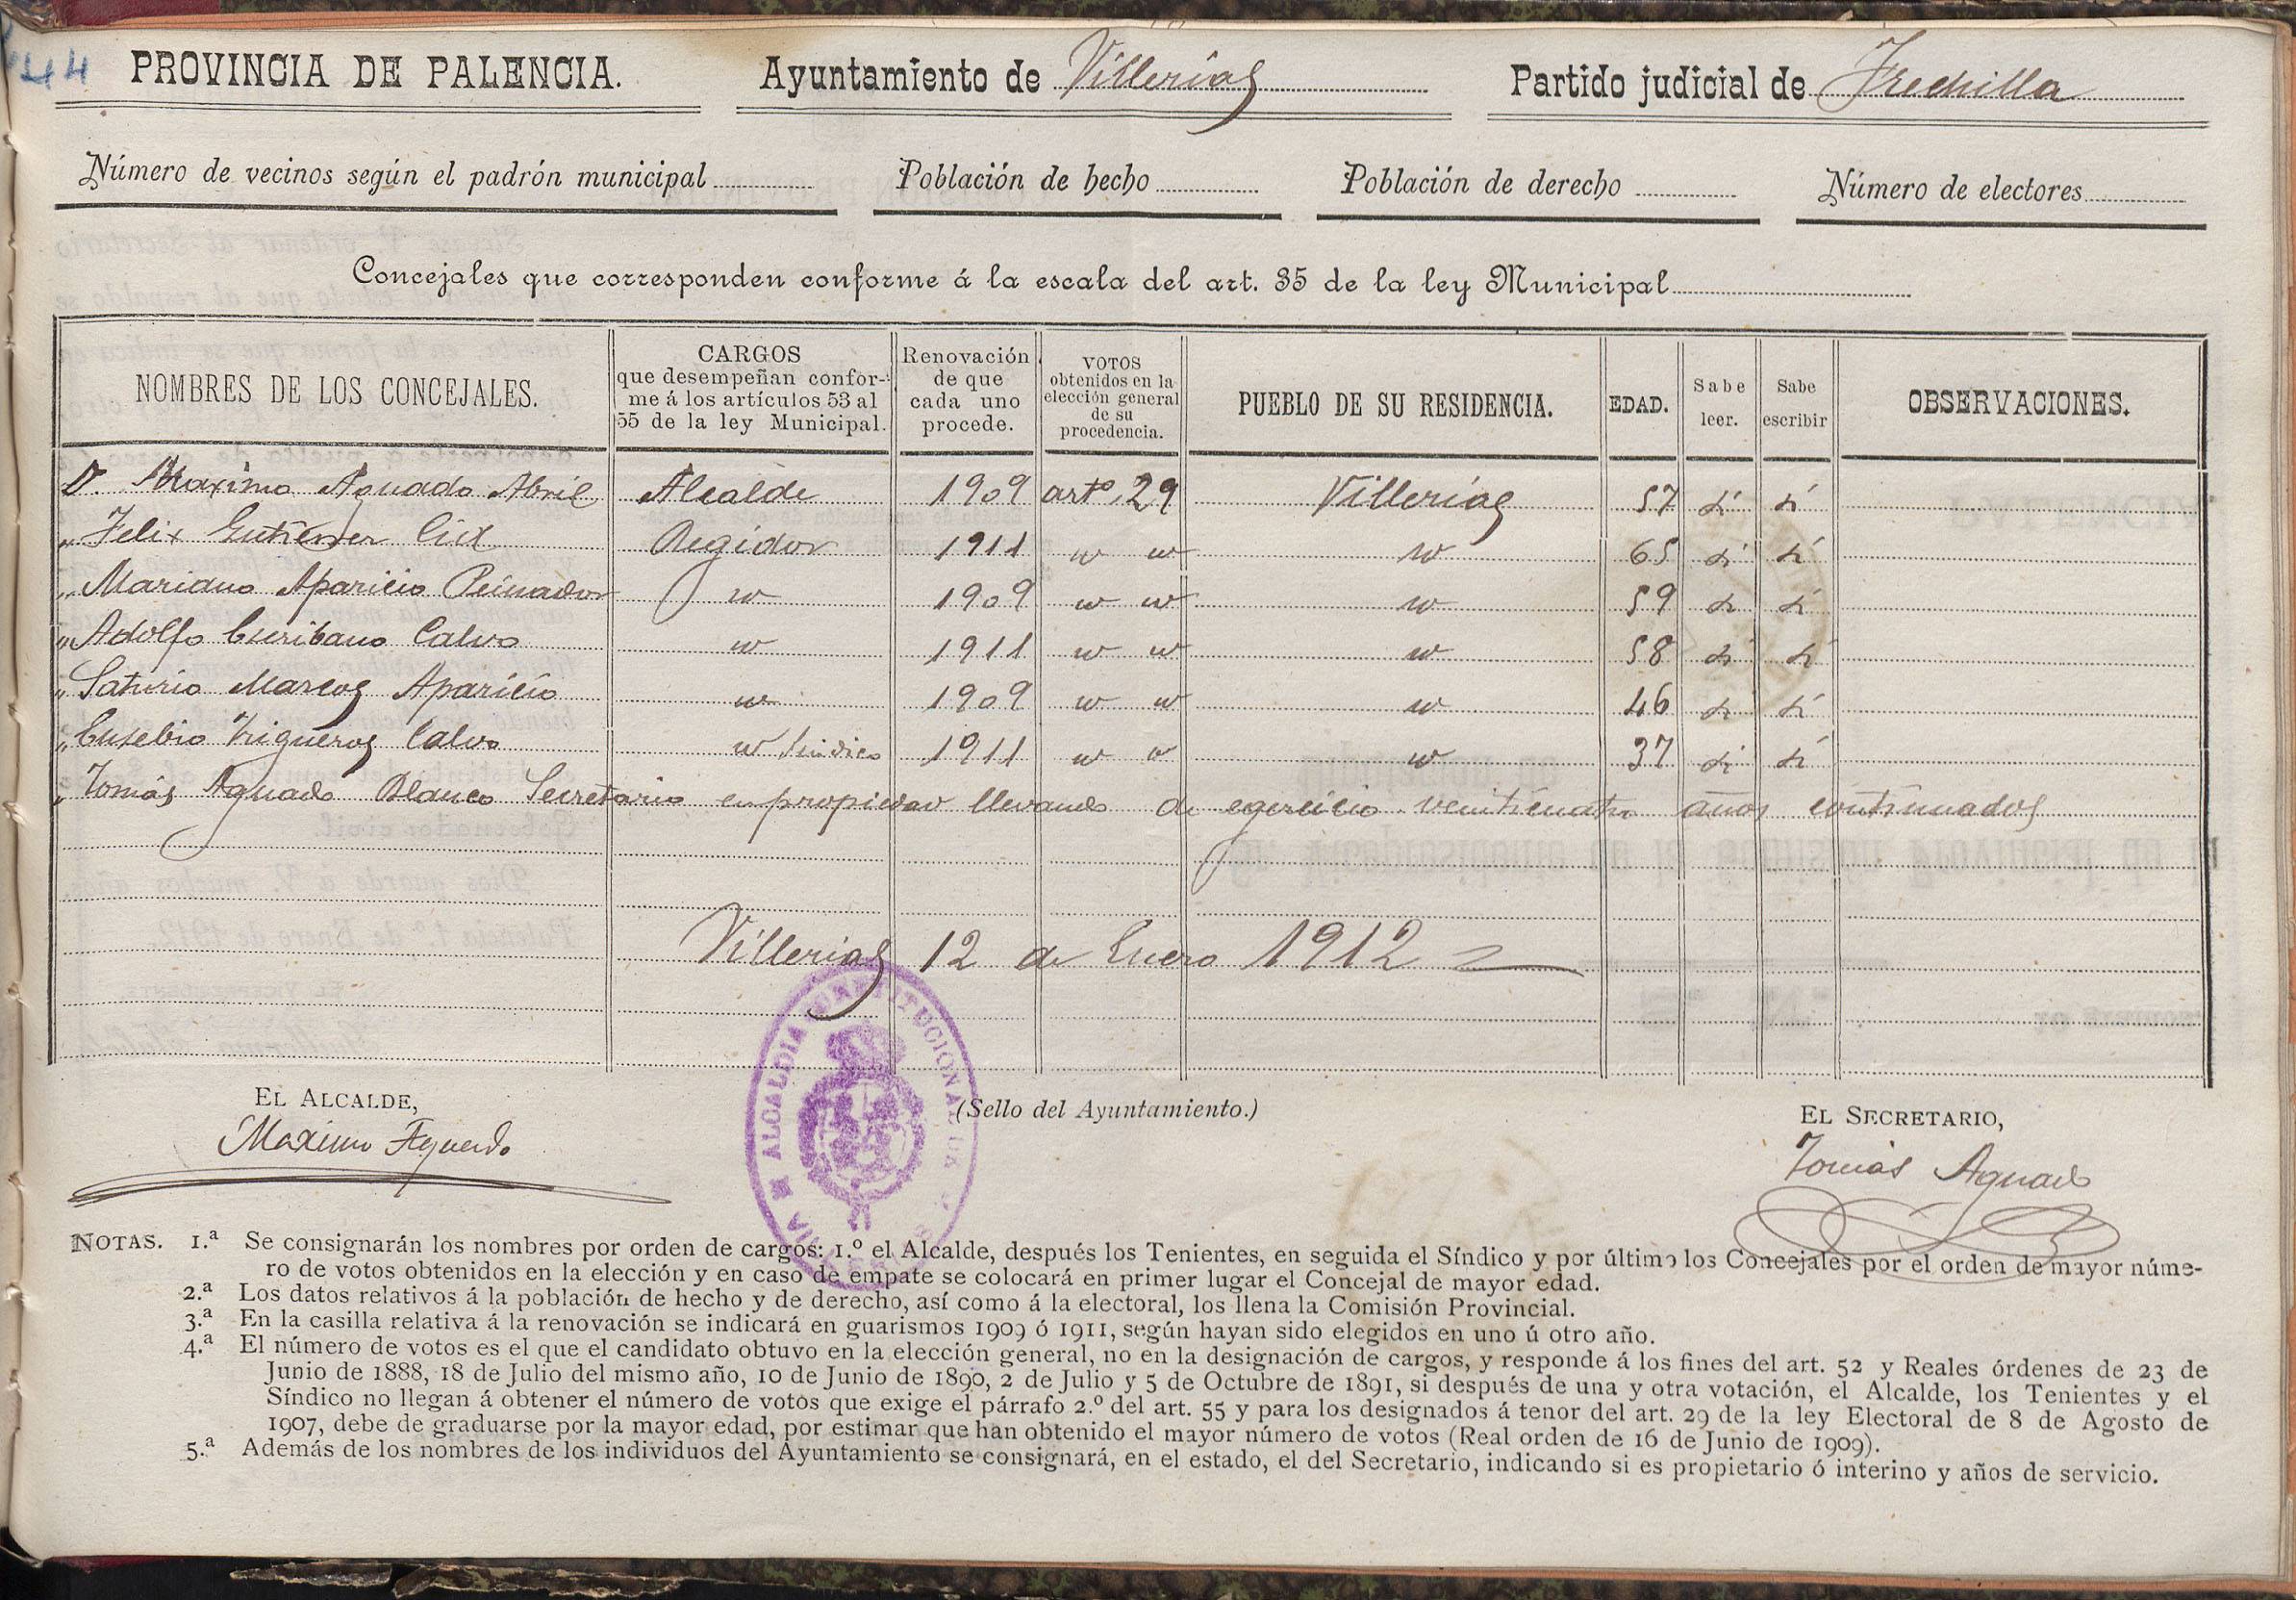 44
PROVINCIA DE PALENCIA. Ayuntamiento de Villerias Partido judicial de Frechilla
Número de vecinos según el padrón municipal Población de hecho Población de derecho Número de electores
Concejales que corresponden conforme á la escala del art. 35 de la ley Municipal
NOMBRES DE LOS CONCEJALES. CARGOS que desempeñan confor-me á los artículos 53 al 55 de la ley Municipal. Renovación de que cada uno procede. VOTOS obtenidos en la elección general de su procedencia. PUEBLO DE SU RESIDENCIA. EDAD. Sabe leer. Sabe escribir OBSERVACIONES.
D. Maximo Aguado Abril Alcalde 1909 artº 29 Villerias 57 si si
" Felix Gutierrez Cid Regidor 1911 " " " 65 si si
" Mariano Aparicio Peinador " 1909 " " " 59 si si
" Adolfo Escribano Calvo " 1911 " " " 58 si si
" Saturio Marcos Aparicio " 1909 " " " 46 si si
" Eusebio Trigueros Calvo " Sindico 1911 " " " 37 si si
" Tomás Aguado Blanco Secretario en propiedad llevando de egercicio veinticuatro años continuados
Villerias 12 de Enero 1912
ALCALDIA CONSTITUCIONAL DE VILLERIAS
EL ALCALDE, (Sello del Ayuntamiento.) EL SECRETARIO,
Maximo Aguado Tomás Aguado
NOTAS. 1.ª Se consignarán los nombres por orden de cargos: 1.º el Alcalde, después los Tenientes, en seguida el Síndico y por último los Concejales por el orden de mayor núme-
ro de votos obtenidos en la elección y en caso de empate se colocará en primer lugar el Concejal de mayor edad.
2.ª Los datos relativos á la población de hecho y de derecho, así como á la electoral, los llena la Comisión Provincial.
3.ª En la casilla relativa á la renovación se indicará en guarismos 1909 ó 1911, según hayan sido elegidos en uno ú otro año.
4.ª El número de votos es el que el candidato obtuvo en la elección general, no en la designación de cargos, y responde á los fines del art. 52 y Reales órdenes de 23 de
Junio de 1888, 18 de Julio del mismo año, 10 de Junio de 1890, 2 de Julio y 5 de Octubre de 1891, si después de una y otra votación, el Alcalde, los Tenientes y el
Síndico no llegan á obtener el número de votos que exige el párrafo 2.º del art. 55 y para los designados á tenor del art. 29 de la ley Electoral de 8 de Agosto de
1907, debe de graduarse por la mayor edad, por estimar que han obtenido el mayor número de votos (Real orden de 16 de Junio de 1909).
5.ª Además de los nombres de los individuos del Ayuntamiento se consignará, en el estado, el del Secretario, indicando si es propietario ó interino y años de servicio.